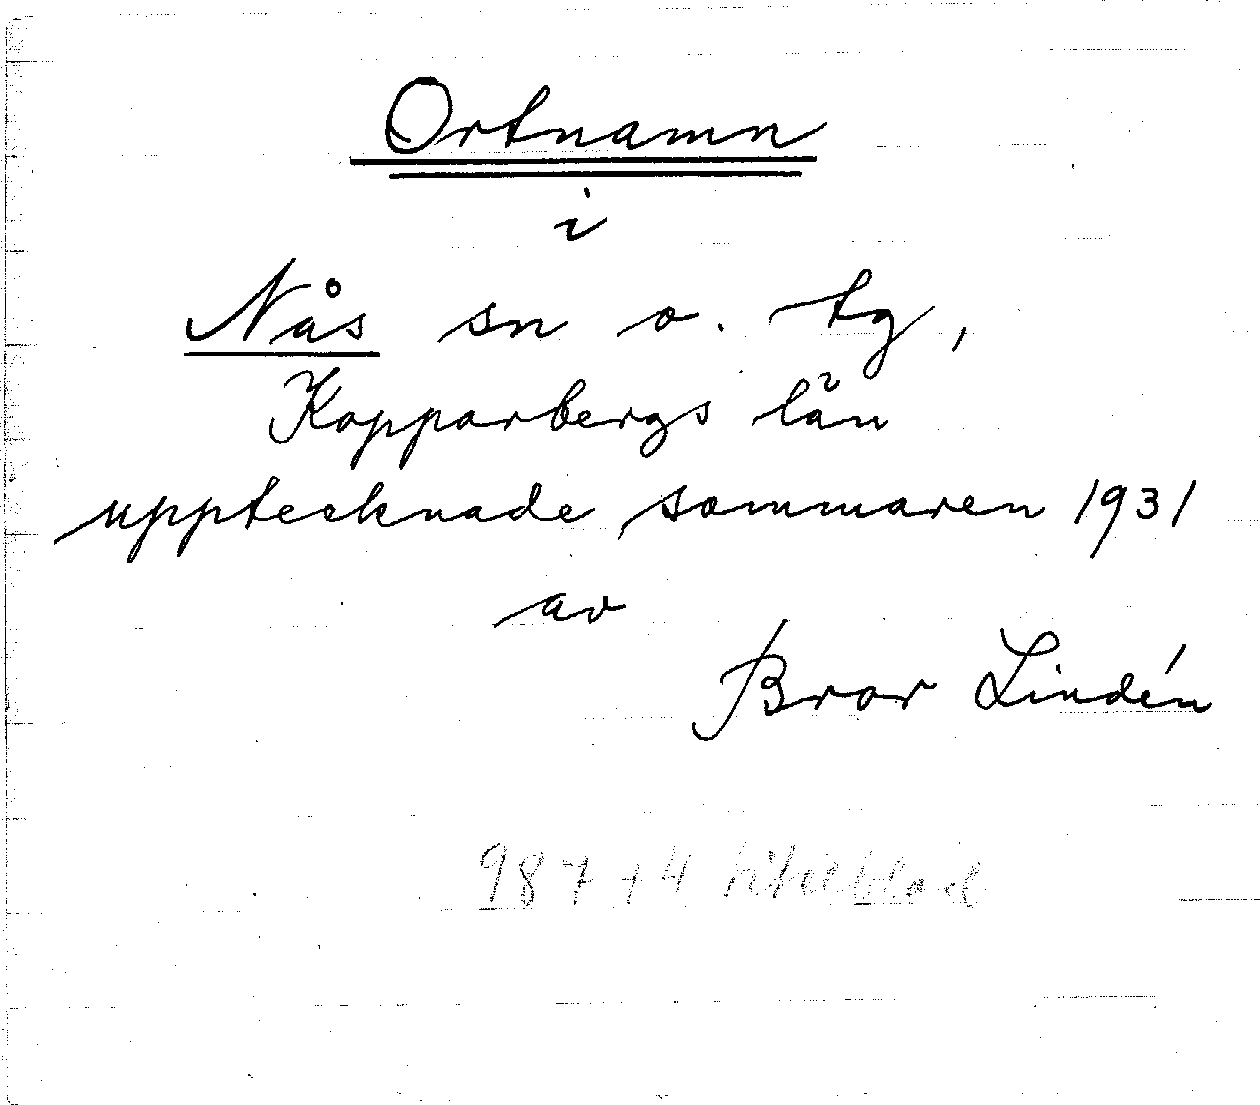 Ortnamn
i
Nås sn o. tg,
Kopparbergs län
upptecknade sommaren 1931
av
Bror Lindén
987 + 4 titelblad